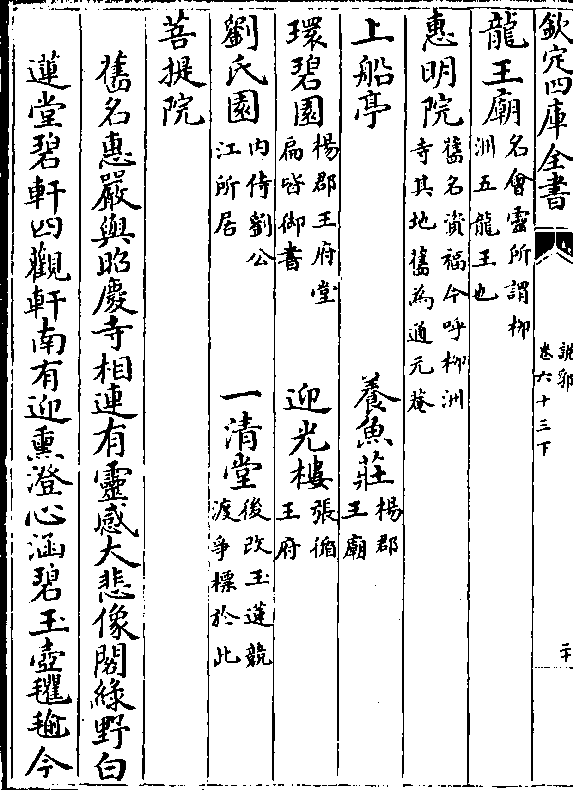 欽定四庫全書
說郛
卷六十三下
二十
龍王廟名會靈所謂柳洲五龍王也
惠明院舊名資福今呼柳洲寺其地舊為通元菴
上船亭 養魚莊楊郡王廟
環碧園楊郡王府堂扁皆御書 迎光樓張循王府
劉氏園内侍劉公江所居 一清堂後改玉蓮競渡爭標於此
菩提院
舊名惠嚴與昭慶寺相連有靈感大悲像閣綠野白
蓮堂碧軒四觀軒南有迎熏澄心涵碧玉壺今